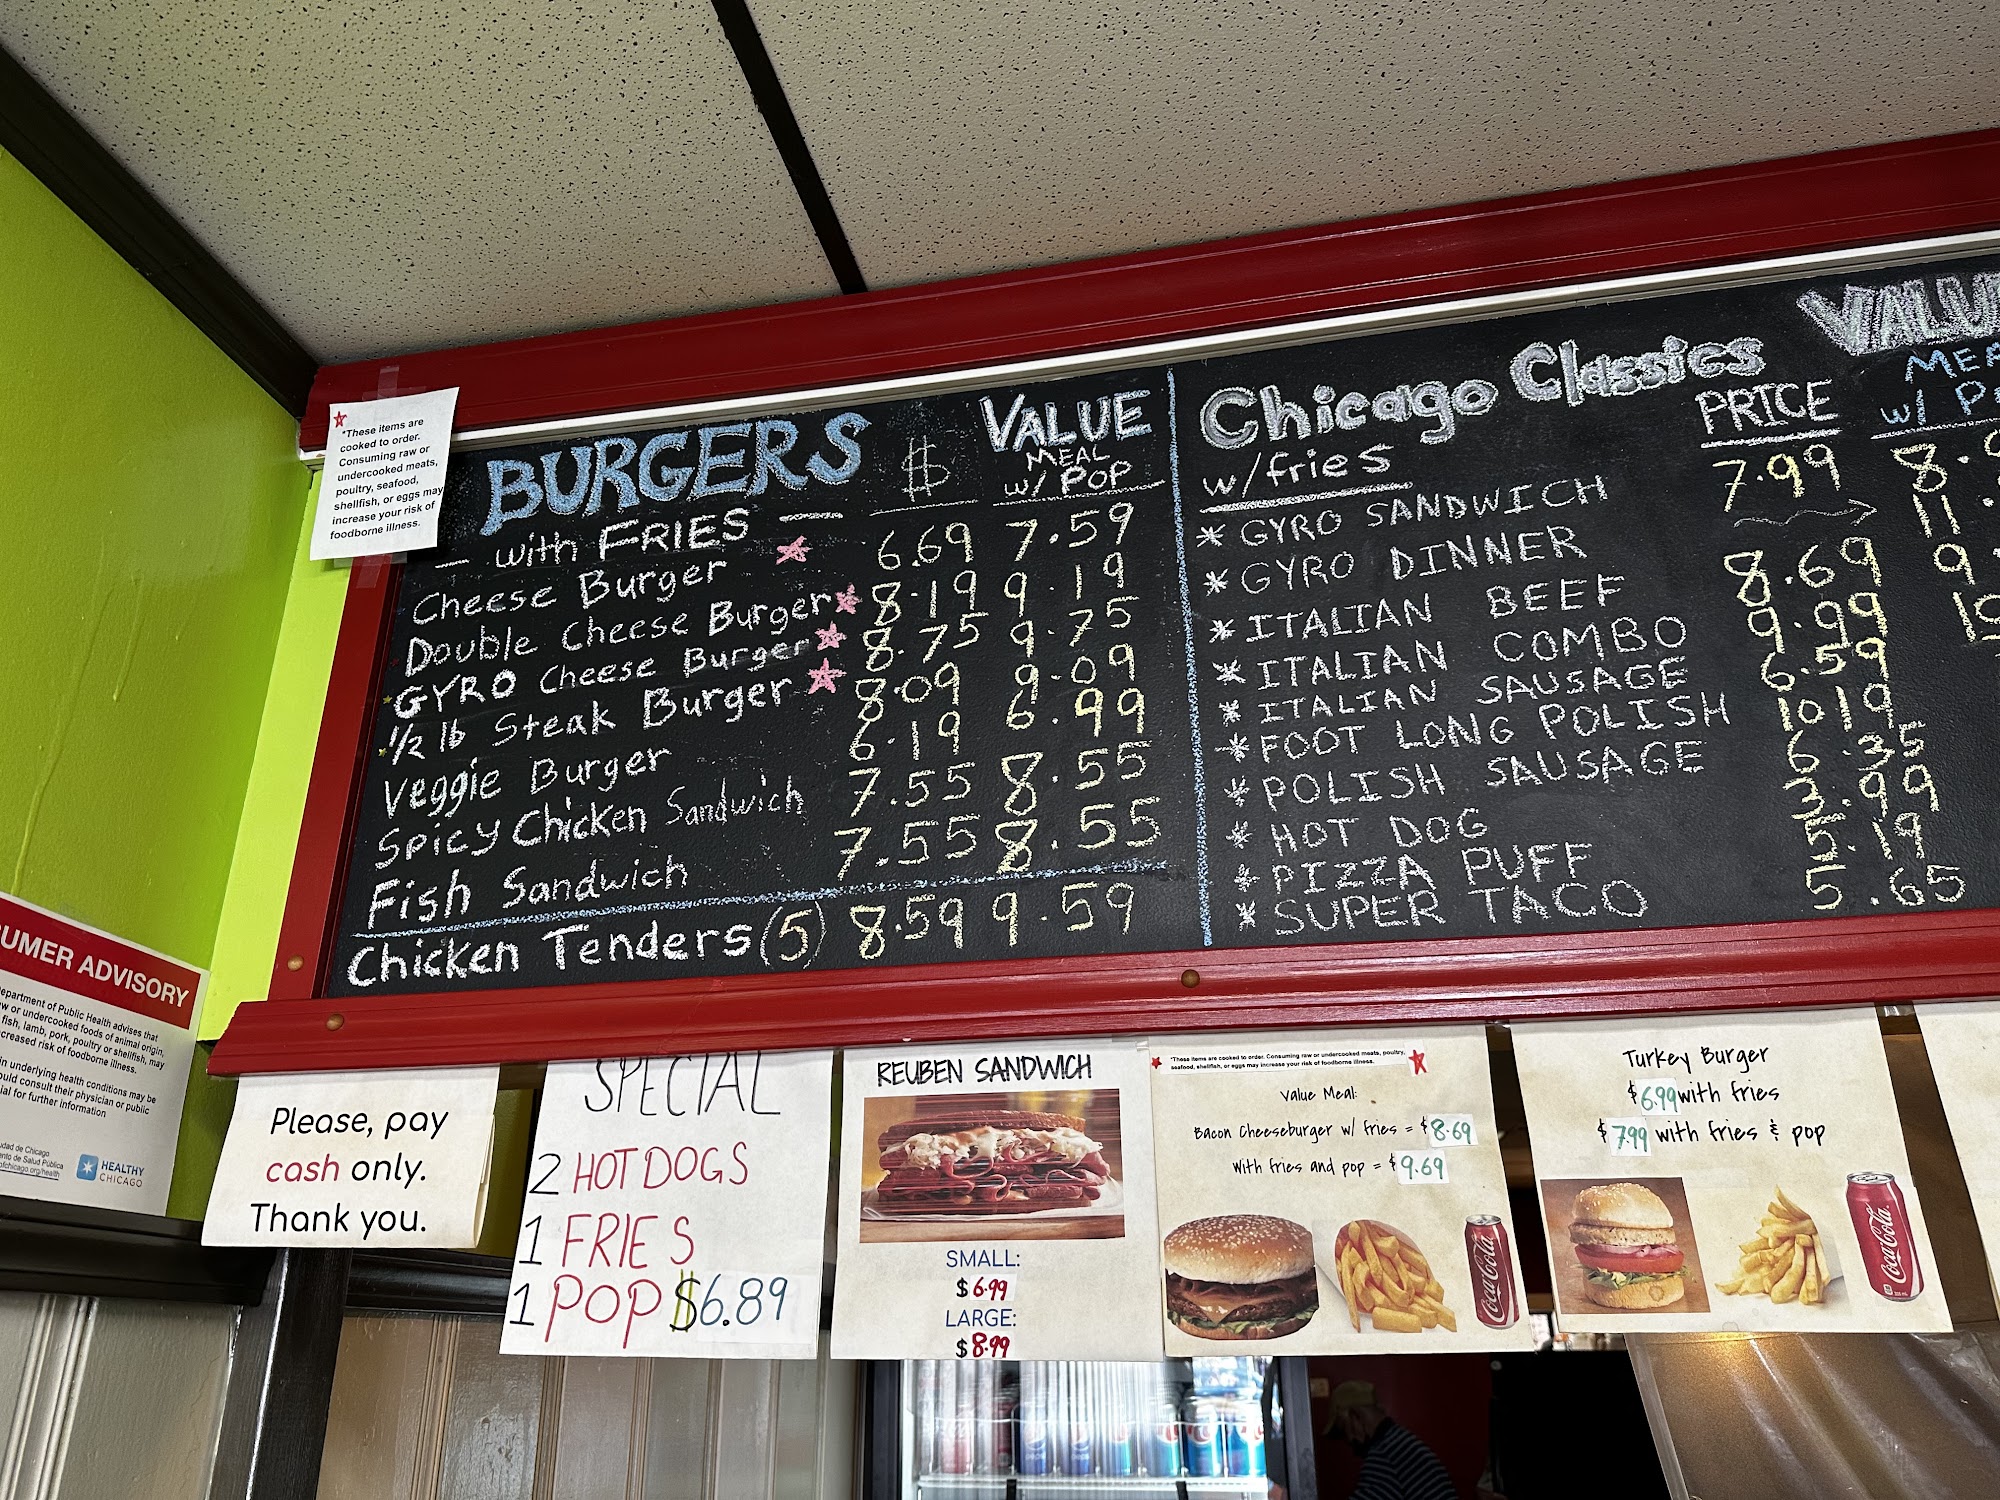 *These items are
cooked to order.
Consuming raw or
undercooked meats,
poultry, seafood,
shellfish, or eggs may
increase your risk of
foodborne illness.
BURGERS $ VALUE
MEAL
w/ POP
— with FRIES —
Cheese Burger 6.69 7.59
Double Cheese Burger 8.19 9.19
GYRO Cheese Burger 8.75 9.75
1/2 lb Steak Burger 8.09 9.09
Veggie Burger 6.19 6.99
Spicy Chicken Sandwich 7.55 8.55
Fish Sandwich 7.55 8.55
Chicken Tenders (5) 8.59 9.59
Chicago Classics
w/fries
PRICE
* GYRO SANDWICH 7.99
* GYRO DINNER
* ITALIAN BEEF 8.69
* ITALIAN COMBO 9.99
* ITALIAN SAUSAGE 6.59
* FOOT LONG POLISH 10.19
* POLISH SAUSAGE 6.35
* HOT DOG 3.99
* PIZZA PUFF 5.19
* SUPER TACO 5.65
ADVISORY
epartment of Public Health advises that
w or undercooked foods of animal origin,
fish, lamb, pork, poultry or shellfish, may
creased risk of foodborne illness.
underlying health conditions may be
consult their physician or public
for further information
HEALTHY
CHICAGO
Please, pay
cash only.
Thank you.
SPECIAL
2 HOT DOGS
1 FRIES
1 POP $6.89
REUBEN SANDWICH
SMALL:
$6.99
LARGE:
$8.99
*These items are cooked to order. Consuming raw or undercooked meats, poultry,
seafood, shellfish, or eggs may increase your risk of foodborne illness.
Value Meal:
Bacon Cheeseburger w/ fries = $8.69
With fries and pop = $9.69
Coca-Cola
Turkey Burger
$6.99 with fries
$7.99 with fries & pop
Coca-Cola